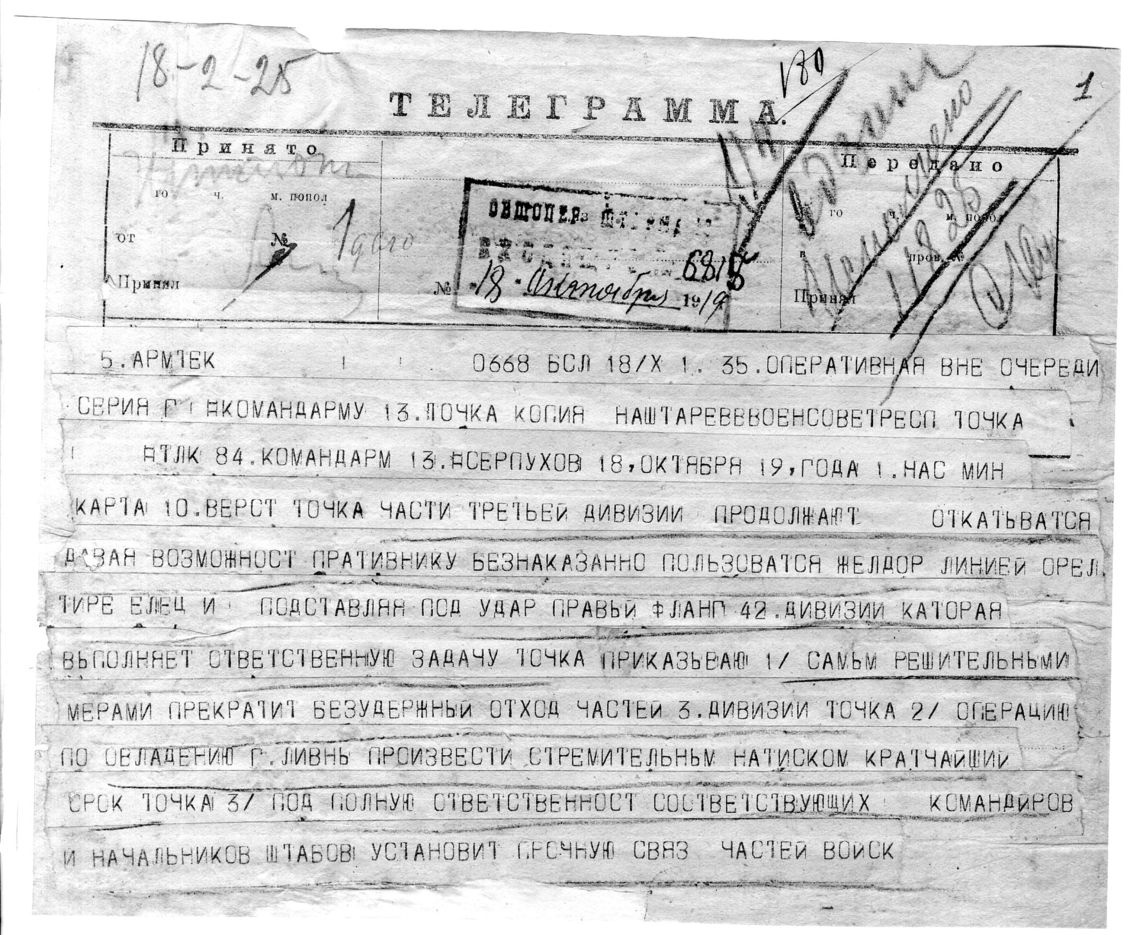 18-2-25
180
1
ТЕЛЕГРАММА.
Принято
го ч. м. попол
от №
Принял
18 Октября 1919
6818
№
Передано
го ч. м. попол
в пров. №
Принял
5.АРМТЕК 0668 БСЛ 18/Х 1. 35.ОПЕРАТИВНАЯ ВНЕ ОЧЕРЕДИ
СЕРИЯ Г КОМАНДАРМУ 13.ТОЧКА КОПИЯ НАШТАРЕВВВОЕНСОВЕТРЕСП ТОЧКА
ТЛК 84.КОМАНДАРМ 13.СЕРПУХОВ 18,ОКТЯБРЯ 19,ГОДА 1.НАС МИН
КАРТА 10.ВЕРСТ ТОЧКА ЧАСТИ ТРЕТЬЕЙ ДИВИЗИИ ПРОДОЛЖАЮТ ОТКАТЬВАТСЯ
ДАВАЯ ВОЗМОЖНОСТ ПРАТИВНИКУ БЕЗНАКАЗАННО ПОЛЬЗОВАТСЯ ЖЕЛДОР ЛИНИЕЙ ОРЕЛ
ТИРЕ ЕЛЕЦ И ПОДСТАВЛЯЯ ПОД УДАР ПРАВЬЙ ФЛАНГ 42.ДИВИЗИИ КАТОРАЯ
ВЬПОЛНЯЕТ ОТВЕТСТВЕННУЮ ЗАДАЧУ ТОЧКА ПРИКАЗЬВАЮ 1/ САМЬМ РЕШИТЕЛЬНЬМИ
МЕРАМИ ПРЕКРАТИТ БЕЗУДЕРЖНЬЙ ОТХОД ЧАСТЕЙ 3.ДИВИЗИИ ТОЧКА 2/ ОПЕРАЦИЮ
ПО ОВЛАДЕНИЮ Г.ЛИВНЬ ПРОИЗВЕСТИ СТРЕМИТЕЛЬНЬМ НАТИСКОМ КРАТЧАЙШИЙ
СРОК ТОЧКА 3/ ПОД ПОЛНУЮ ОТВЕТСТВЕННОСТ СООТВЕТСТВУЮЩИХ КОМАНДИРОВ
И НАЧАЛЬНИКОВ ШТАБОВ УСТАНОВИТ ПРОЧНУЮ СВЯЗ ЧАСТЕЙ ВОЙСК